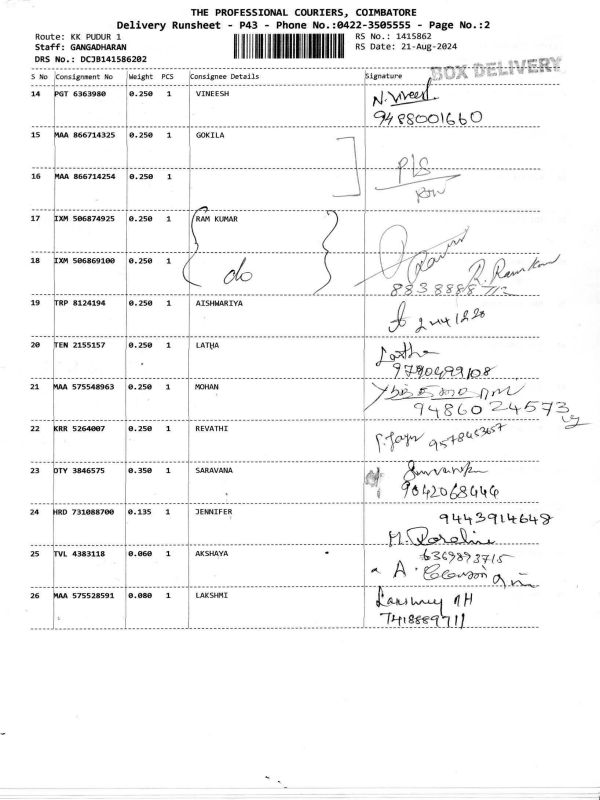 THE PROFESSIONAL COURIERS, COIMBATORE
Delivery Runsheet - P43 - Phone No.:0422-3505555 - Page No.:2
Route: KK PUDUR 1 RS No.: 1415862
Staff: GANGADHARAN RS Date: 21-Aug-2024
DRS No.: DCJB141586202
BOX DELIVERY
S No Consignment No Weight PCS Consignee Details Signature
14 PGT 6363980 0.250 1 VINEESH N. Vineesh
9488001660
15 MAA 866714325 0.250 1 GOKILA
16 MAA 866714254 0.250 1 P/S
17 IXM 506874925 0.250 1 RAM KUMAR
18 IXM 506869100 0.250 1 do R. Ramkumar
19 TRP 8124194 0.250 1 AISHWARIYA
20 TEN 2155157 0.250 1 LATHA Latha
9790499108
21 MAA 575548963 0.250 1 MOHAN
9486024573
22 KRR 5264007 0.250 1 REVATHI 9578453657
23 OTY 3846575 0.350 1 SARAVANA
9042068444
24 HRD 731088700 0.135 1 JENNIFER 9443914648
25 TVL 4383118 0.060 1 AKSHAYA 6369893715
A.
26 MAA 575528591 0.080 1 LAKSHMI
7418889711